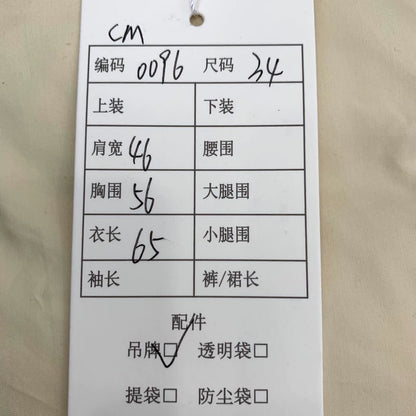 CM
编码 0096 尺码 34
上装 下装
肩宽 46 腰围
胸围 56 大腿围
衣长 65 小腿围
袖长 裤/裙长
配件
吊牌☑ 透明袋☐
提袋☐ 防尘袋☐